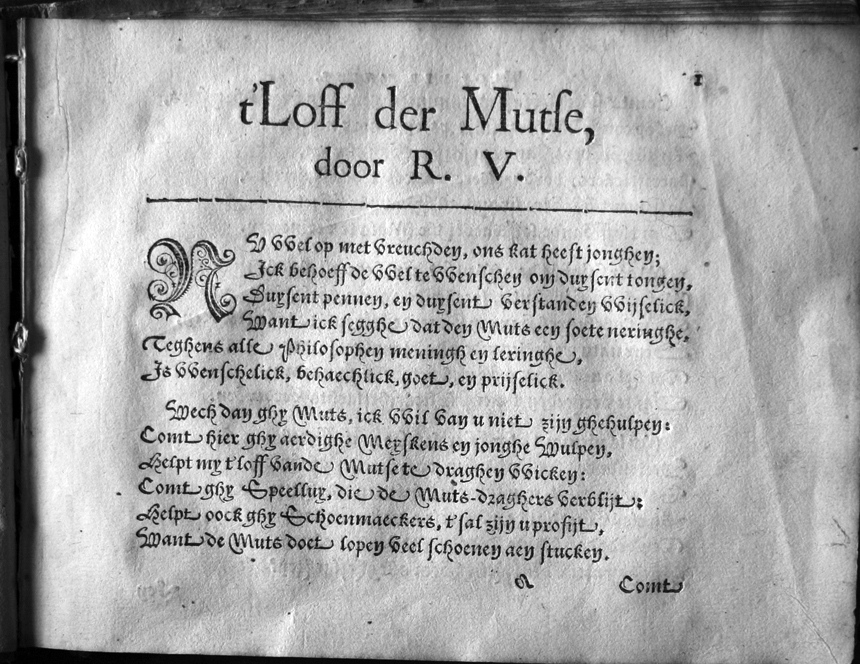 1
t'Loff der Mutse,
door R. V.
NV VVel op met vreuchden, ons kat heeft jonghen;
Ick behoeffde VVel te VVenschen om duysent tongen,
Duysent pennen, en duysent verstanden VVijselick,
Want ick segghe dat den Muts een soete neringhe,
Teghens alle Philosophen meningh en leringhe,
Is VVenschelick, behaechlick, goet, en prijselick.
Wech dan ghy Muts, ick VVil van u niet zijn ghehulpen:
Comt hier ghy aerdighe Meyskens en jonghe Wulpen,
Helpt my t'loff vande Mutse te draghen VVicken:
Comt ghy Speelluy, die de Muts-draghers verblijt:
Helpt oock ghy Schoenmaeckers, t'sal zijn u profijt,
Want de Muts doet lopen veel schoenen aen stucken.
a Comt